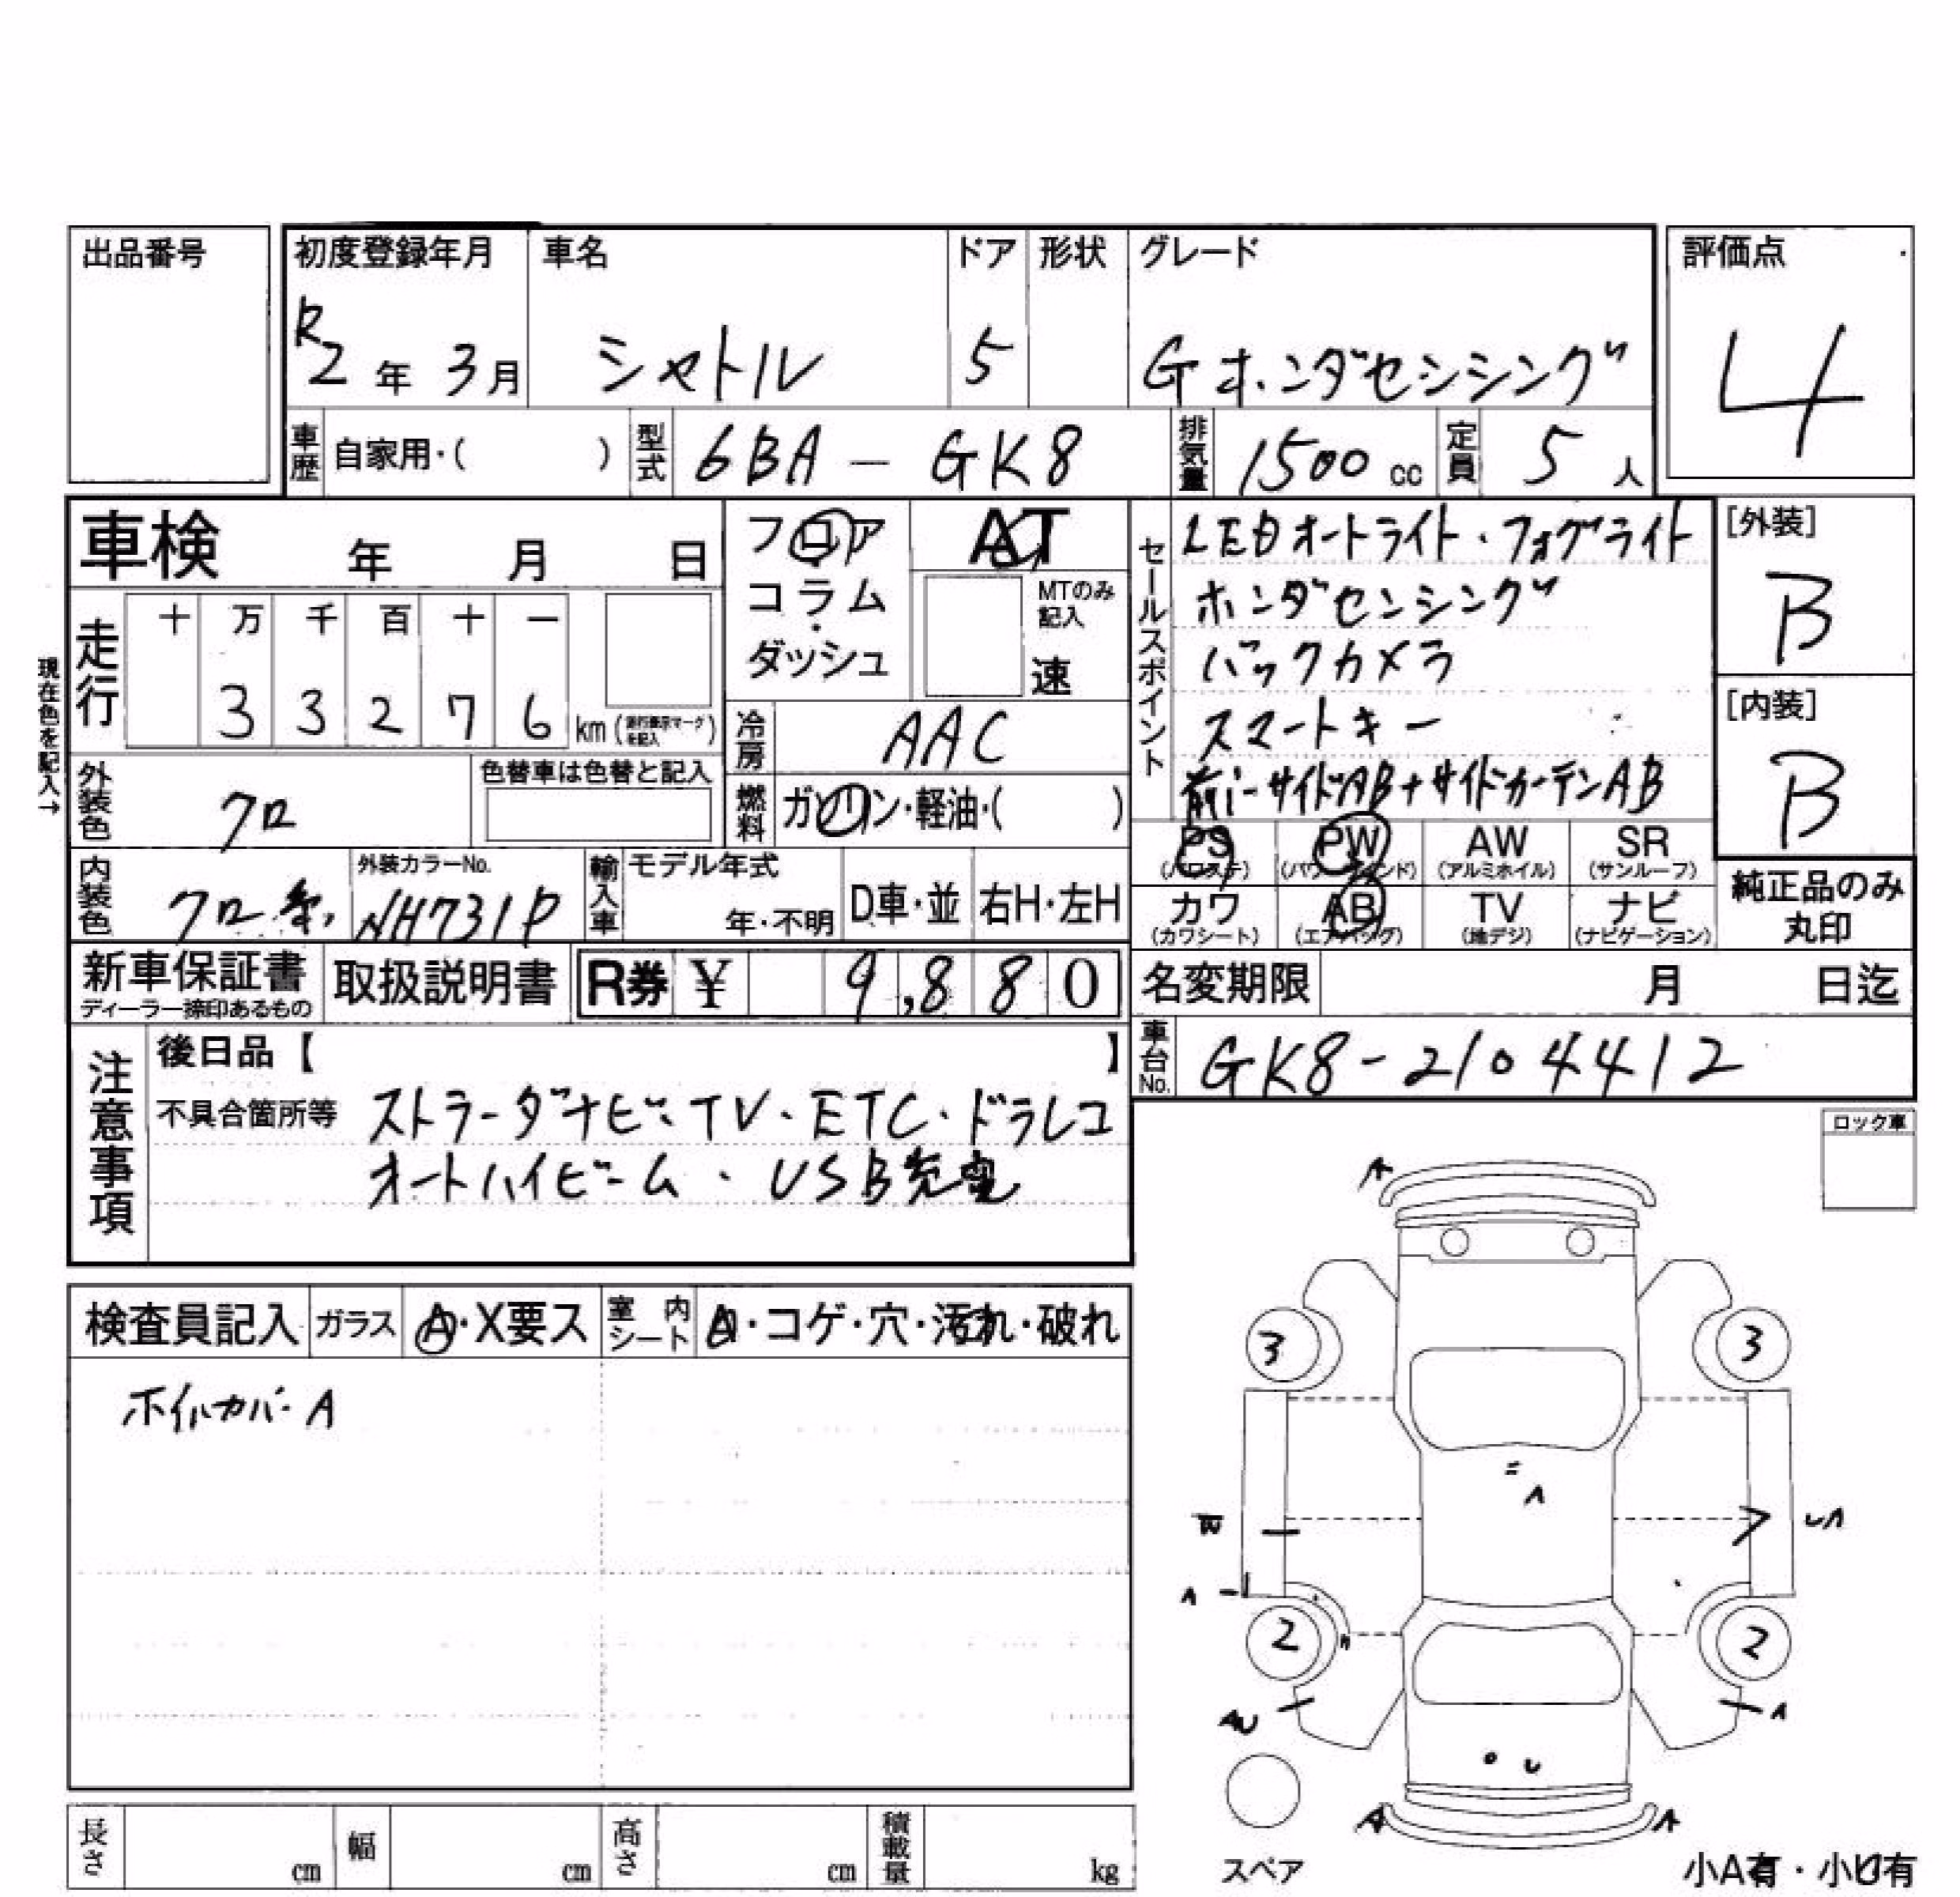 出品番号
初度登録年月 車名 ドア 形状 グレード 評価点
R2年 3月 シャトル 5 Gホンダセンシング 4
車歴 自家用・( ) 型式 6BA-GK8 排気量 1500cc 定員 5人
車検 年 月 日
フロア AT
コラム
ダッシュ
MTのみ記入
速
セールスポイント
LEDオートライト・フォグライト
ホンダセンシング
バックカメラ
スマートキー
前・サイドAB+サイドカーテンAB
[外装]
B
[内装]
B
現在色を記入→
走行 十 万 千 百 十 一
3 3 2 7 6 km
冷房 AAC
外装色 クロ 色替車は色替と記入
燃料 ガソリン・軽油・( )
PS PW AW SR
(パワステ) (パワーウィンド) (アルミホイル) (サンルーフ)
カワ AB TV ナビ
(カワシート) (エアバッグ) (地デジ) (ナビゲーション)
純正品のみ
丸印
内装色 クロ 外装カラーNo. NH731P
輸入車 モデル年式 年・不明 D車・並 右H・左H
新車保証書 取扱説明書 R券 ¥ 9,880
ディーラー捺印あるもの
名変期限 月 日迄
車台No. GK8-2104412
注意事項
後日品【 】
不具合箇所等 ストラーダナビ・TV・ETC・ドラレコ
オートハイビーム・USB充電
ロック車
検査員記入 ガラス A・X要ス 室内シート A・コゲ・穴・汚れ・破れ
ホイルカバーA
A
3 3
A
W UA
A
2 2
AU A
U
A A
スペア
長さ cm 幅 cm 高さ cm 積載量 kg
小A有・小U有